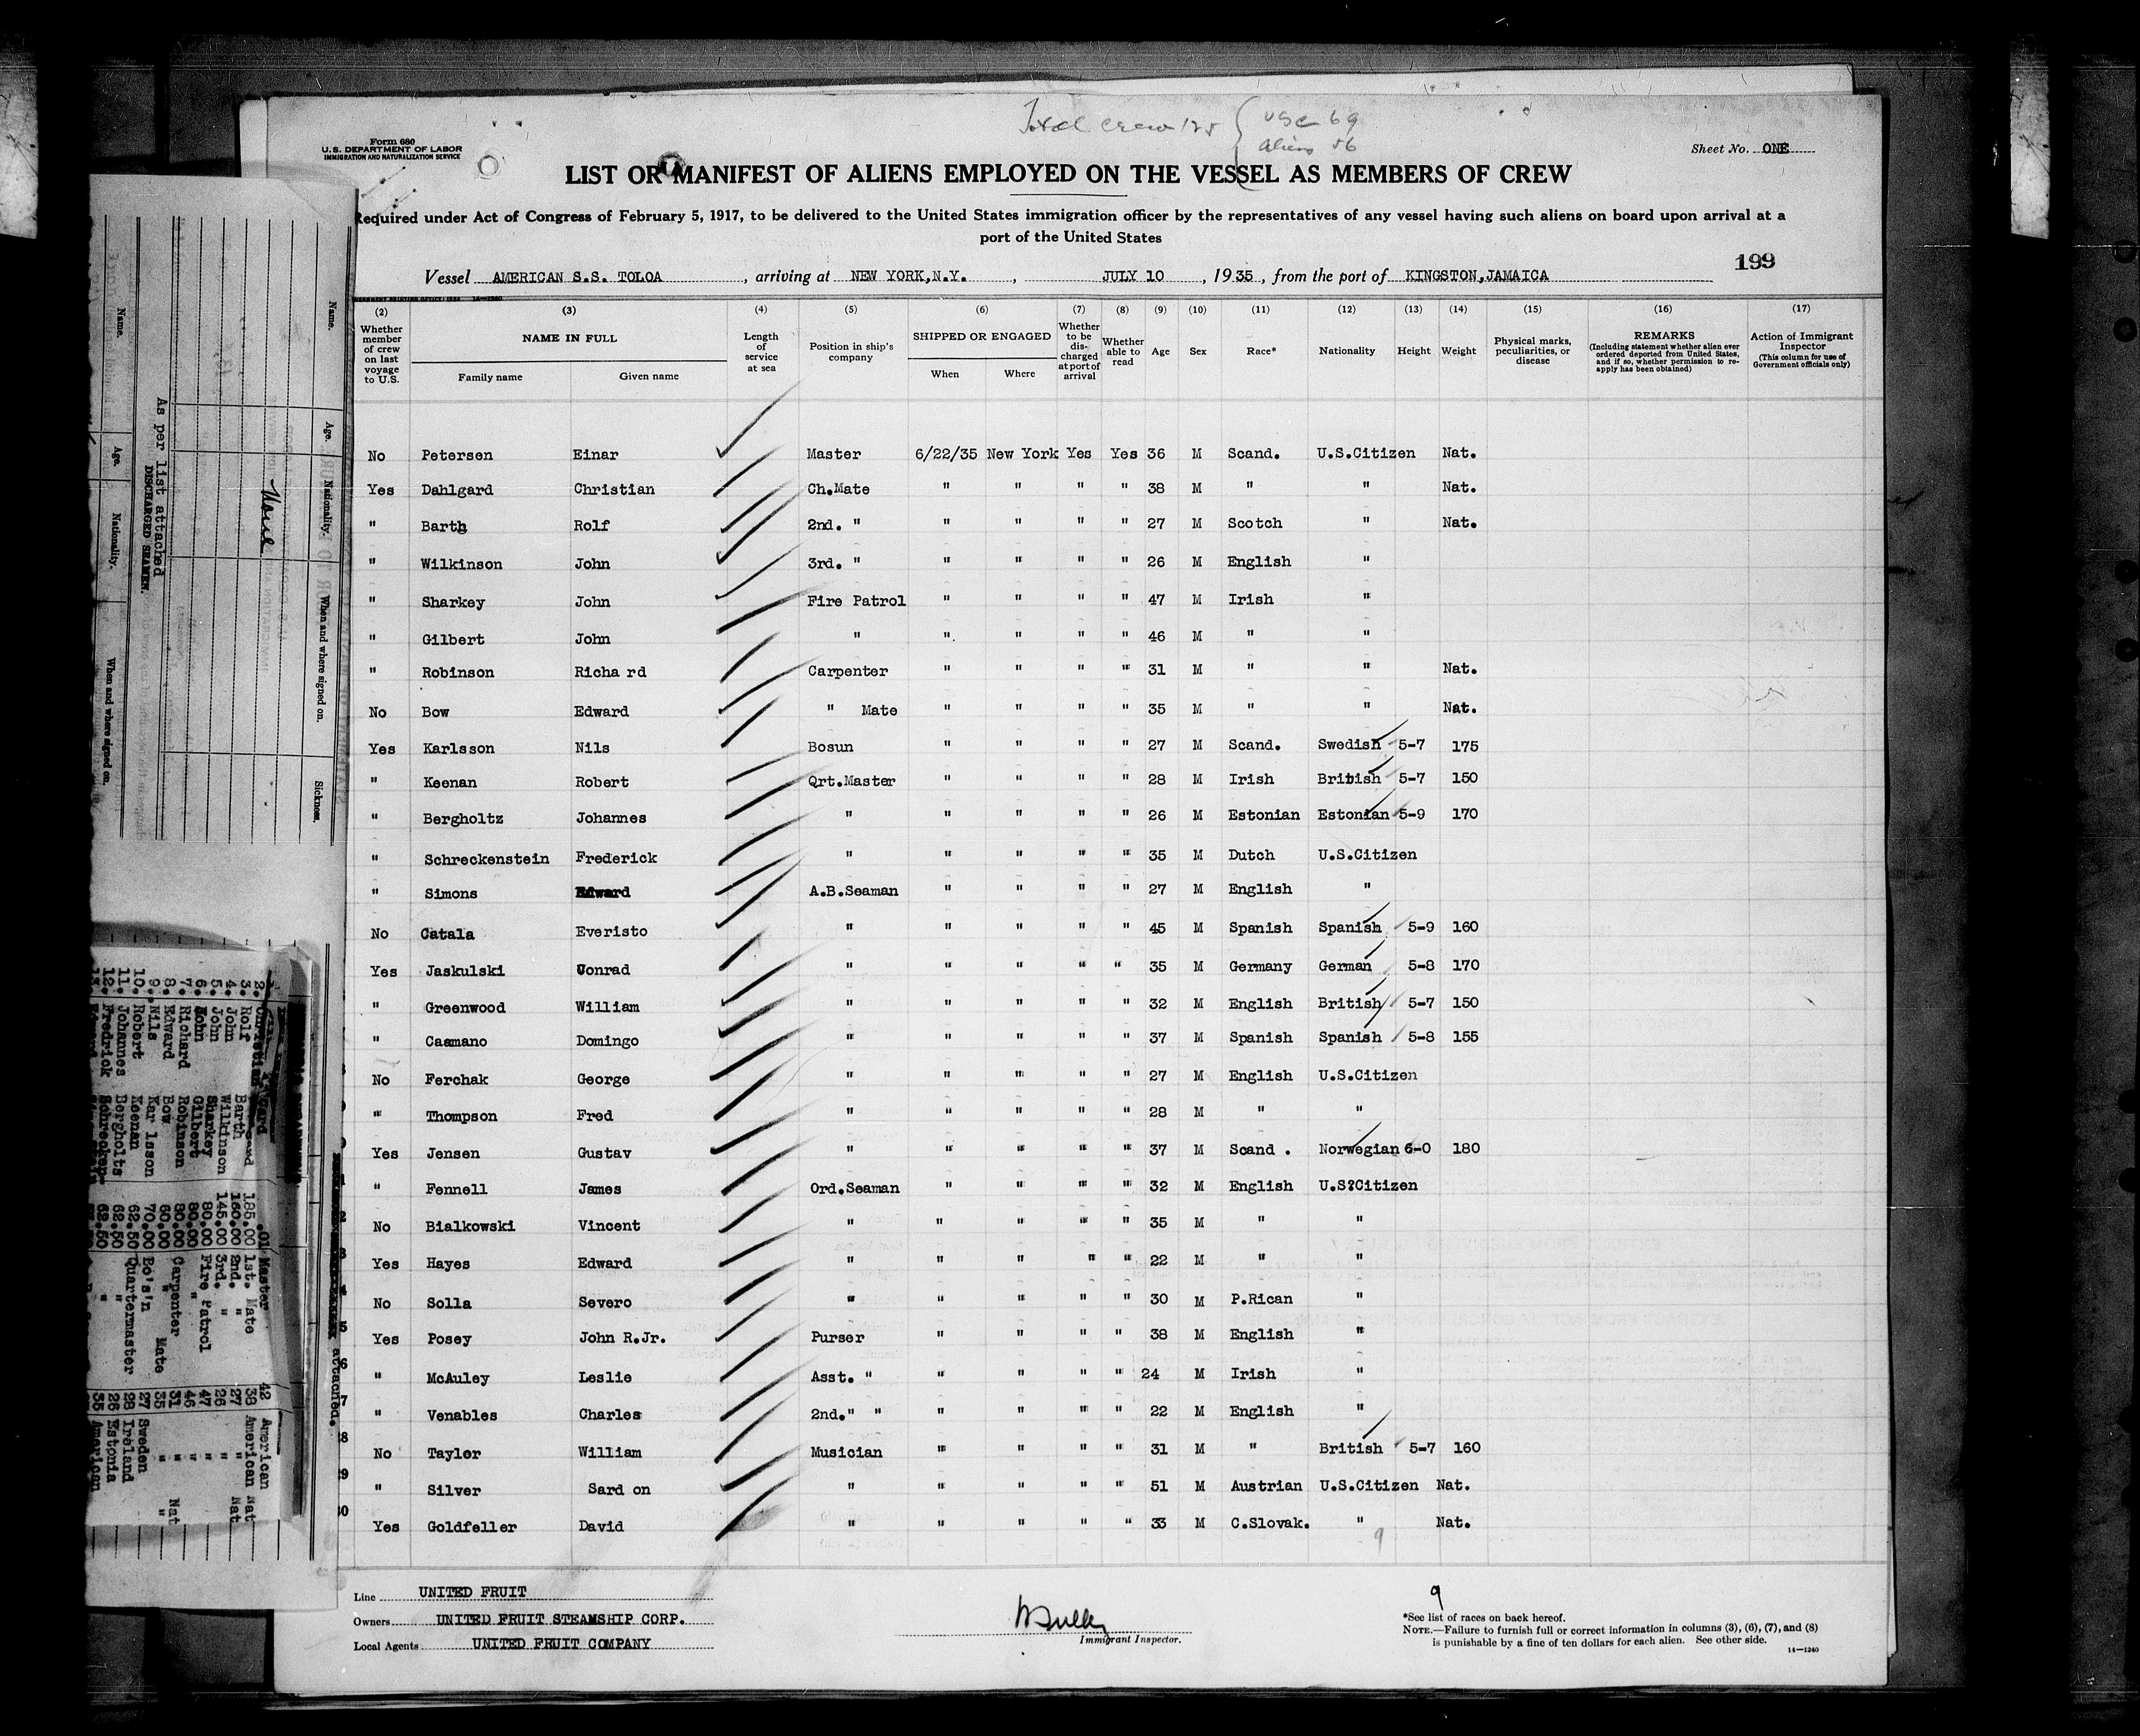 Total crew 125 { USC 69
Aliens 56
Form 680
U.S. DEPARTMENT OF LABOR
IMMIGRATION AND NATURALIZATION SERVICE
Sheet No. ONE
LIST OR MANIFEST OF ALIENS EMPLOYED ON THE VESSEL AS MEMBERS OF CREW
Required under Act of Congress of February 5, 1917, to be delivered to the United States immigration officer by the representatives of any vessel having such aliens on board upon arrival at a
port of the United States
199
Vessel AMERICAN S.S. TOLOA, arriving at NEW YORK,N.Y., JULY 10, 1935, from the port of KINGSTON,JAMAICA
(2) (3) (4) (5) (6) (7) (8) (9) (10) (11) (12) (13) (14) (15) (16) (17)
Whether member of crew on last voyage to U.S.
NAME IN FULL
Family name Given name
Length of service at sea
Position in ship's company
SHIPPED OR ENGAGED
When Where
Whether to be discharged at port of arrival
Whether able to read
Age
Sex
Race*
Nationality
Height
Weight
Physical marks, peculiarities, or disease
REMARKS
(Including statement whether alien ever ordered deported from United States, and if so, whether permission to reapply has been obtained)
Action of Immigrant Inspector
(This column for use of Government officials only)
No Petersen Einar Master 6/22/35 New York Yes Yes 36 M Scand. U.S.Citizen Nat.
Yes Dahlgard Christian Ch.Mate " " " " 38 M " " Nat.
" Barth Rolf 2nd. " " " " " 27 M Scotch " Nat.
" Wilkinson John 3rd. " " " " " 26 M English "
" Sharkey John Fire Patrol " " " " 47 M Irish "
" Gilbert John " " " " " 46 M " "
" Robinson Richa rd Carpenter " " " " 31 M " " Nat.
No Bow Edward " Mate " " " " 35 M " " Nat.
Yes Karlsson Nils Bosun " " " " 27 M Scand. Swedish 5-7 175
" Keenan Robert Qrt.Master " " " " 28 M Irish British 5-7 150
" Bergholtz Johannes " " " " " 26 M Estonian Estonian 5-9 170
" Schreckenstein Frederick " " " " " 35 M Dutch U.S.Citizen
" Simons Edward A.B.Seaman " " " " 27 M English "
No Catala Everisto " " " " " 45 M Spanish Spanish 5-9 160
Yes Jaskulski Conrad " " " " " 35 M Germany German 5-8 170
" Greenwood William " " " " " 32 M English British 5-7 150
" Caamano Domingo " " " " " 37 M Spanish Spanish 5-8 155
No Ferchak George " " " " " 27 M English U.S.Citizen
" Thompson Fred " " " " " 28 M " "
Yes Jensen Gustav " " " " " 37 M Scand . Norwegian 6-0 180
" Fennell James Ord.Seaman " " " " 32 M English U.S?Citizen
No Bialkowski Vincent " " " " " 35 M " "
Yes Hayes Edward " " " " " 22 M " "
No Solla Severo " " " " " 30 M P.Rican "
Yes Posey John R.Jr. Purser " " " " 38 M English "
" McAuley Leslie Asst. " " " " " 24 M Irish "
" Venables Charles 2nd." " " " " " 22 M English "
No Tayler William Musician " " " " 31 M " British 5-7 160
" Silver Sard on " " " " " 51 M Austrian U.S.Citizen Nat.
Yes Goldfeller David " " " " " 33 M C.Slovak. " Nat.
9
Line UNITED FRUIT
Owners UNITED FRUIT STEAMSHIP CORP.
Local Agents UNITED FRUIT COMPANY
Immigrant Inspector.
9
*See list of races on back hereof.
NOTE.—Failure to furnish full or correct information in columns (3), (6), (7), and (8)
is punishable by a fine of ten dollars for each alien. See other side.
14—1240
Name. Age. Nationality. When and where signed on. Sickness.
None
As per list attached
DISCHARGED SEAMEN.
Name. Age. Nationality. When and where signed on.
.01 Master 42 American
185.00 1st. Mate 38 American Nat
3. Rolf Barth 160.00 2nd. " 27 " Nat
4. John Wilkinson 145.00 3rd. " 26 "
5. John Sharkey 80.00 Fire Patrol 47 "
6. John Gilbert 80.00 " 46 "
7. Richard Robinson 80.00 Carpenter 31 " Nat
8. Edward Bow 60.00 " Mate 35 " "
9. Nils Karlsson 70.00 Bo's'n 27 Sweden
10. Robert Keenan 62.50 Quartermaster 28 Ireland
11. Johannes Bergholts 62.50 " 26 Estonia
12. Fredrick Schrecken- 62.50 " 35 American
attached.